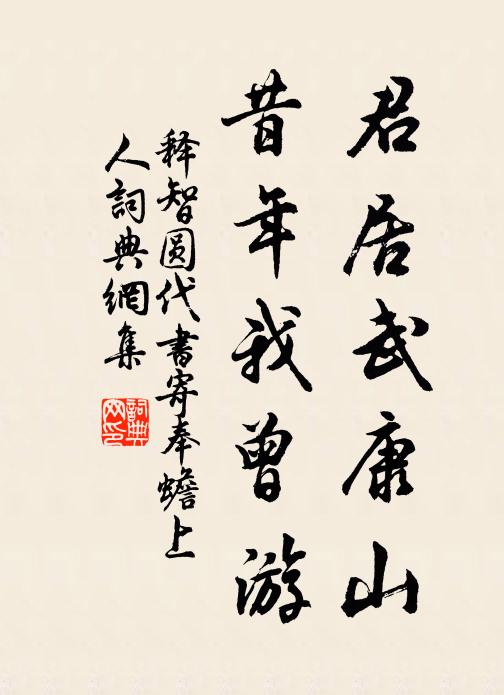 君居武康山
昔年我曾游
释智圆代书寄奉蟾上
人词典網集
詞典
网印